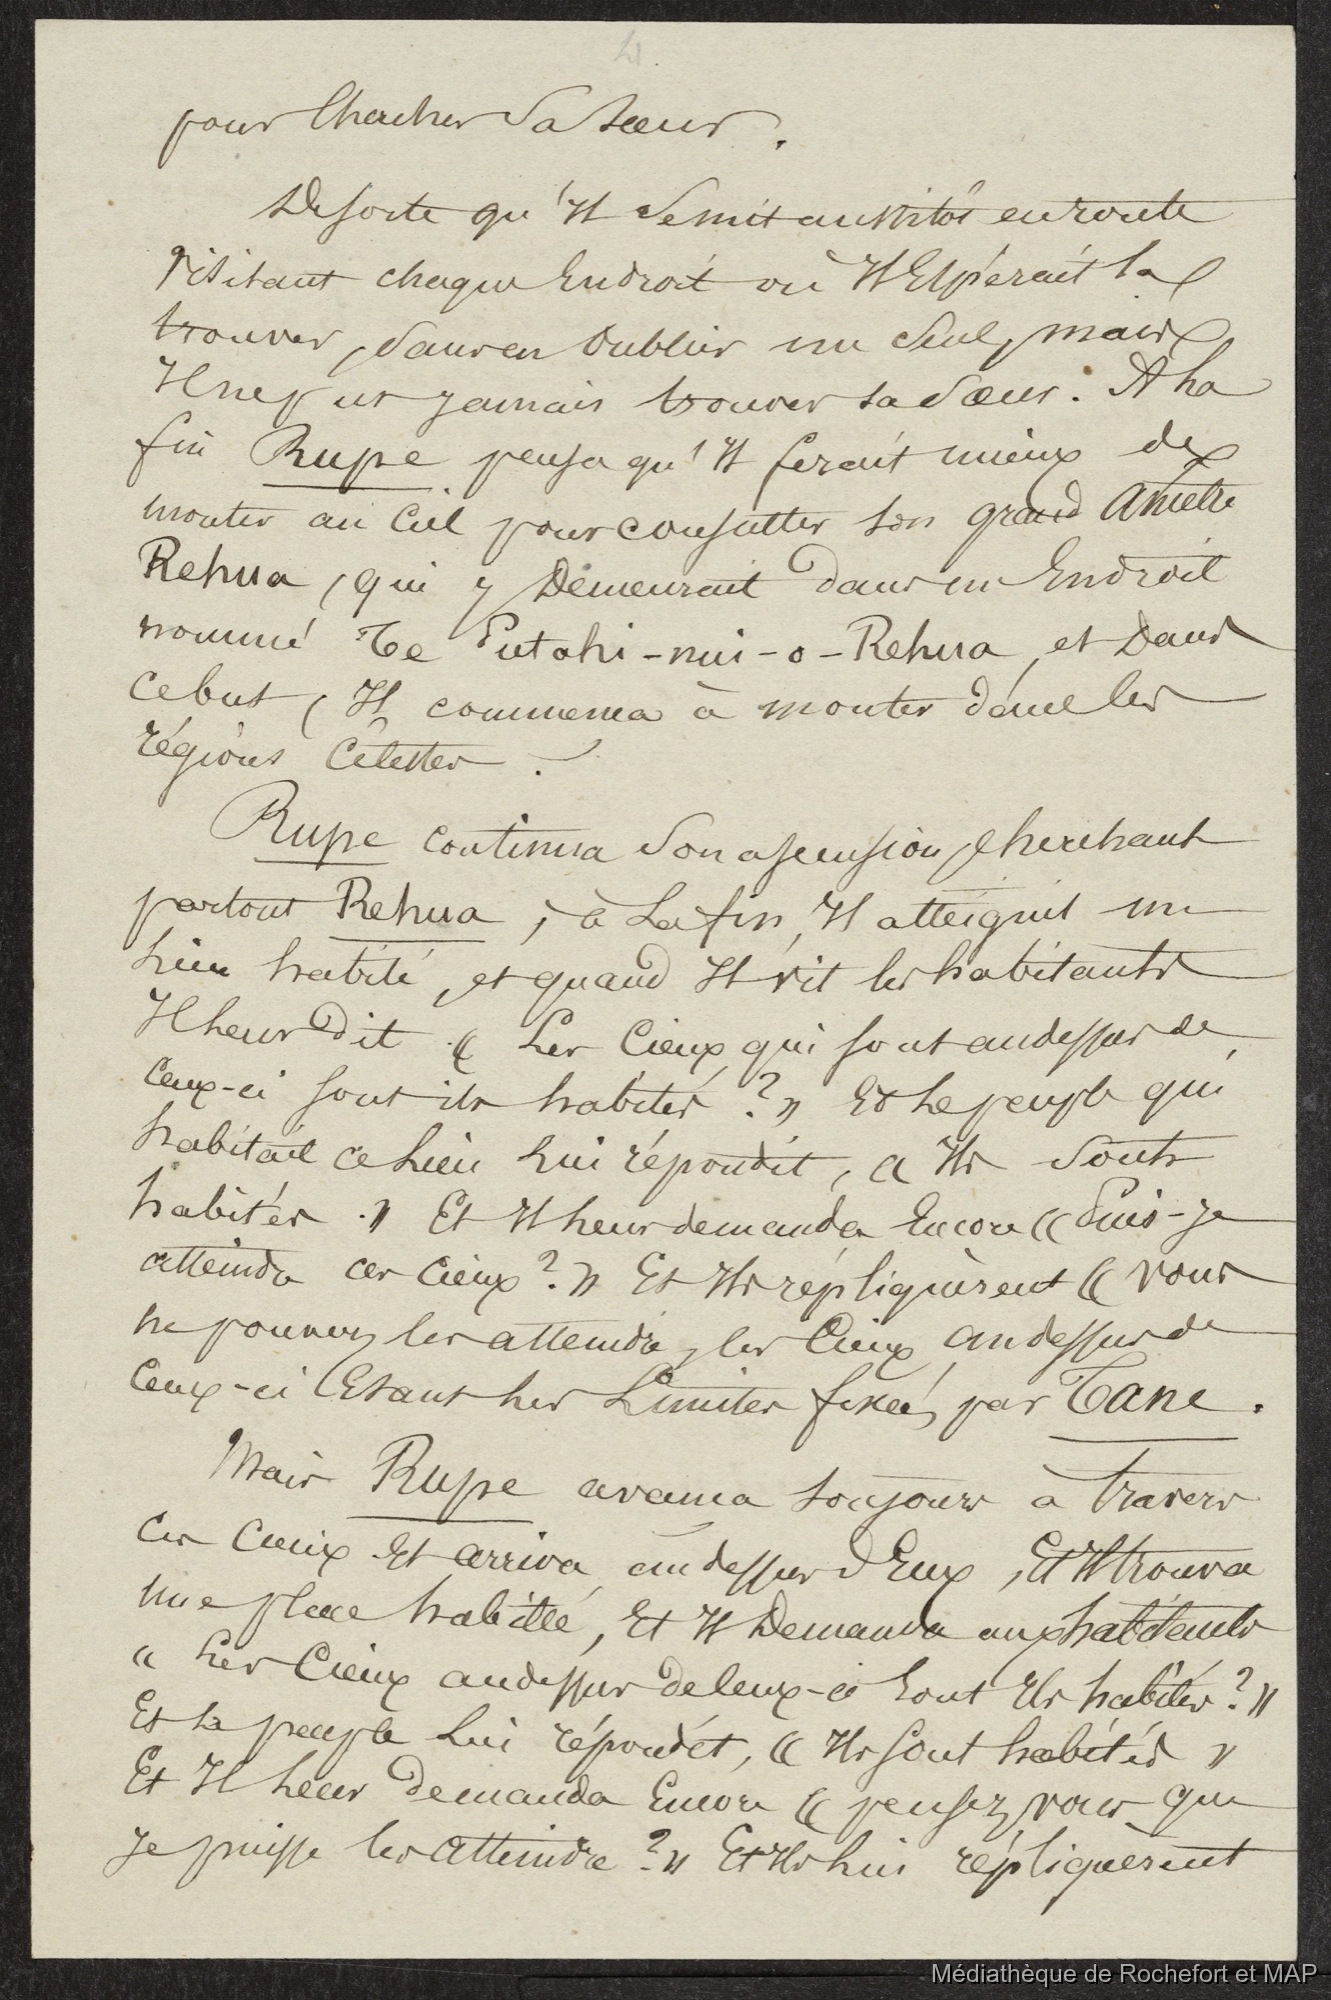 4.
pour Chercher Sa Sœur.
De sorte qu'Il Se mit aussitôt en route
visitant chaque Endroit où Il Espérait la
trouver, Sans en Oublier un Seul, mais
Il ne put jamais trouver sa Sœur. A La
fin Rupe pensa qu'Il ferait mieux de
monter au Ciel pour consulter son grand Ancêtre
Rehua, qui y Demeurait dans un Endroit
nommé Te Putahi-nui-o-Rehua, et Dans
ce but, Il commença à monter dans les
régions Célestes.
Rupe continua Son ascension, cherchant
partout Rehua, à La fin, Il atteignit un
Lieu habité, et quand Il vit les habitants
Il Leur dit « Les Cieux qui sont au dessus de
Ceux-ci sont ils habités ? » Et Le peuple qui
habitait ce Lieu Lui répondit, « Ils Sont
habités. » Et Il Leur demanda Encore « Puis-je
atteindre ces Cieux ? » Et Ils répliquèrent « vous
ne pouvez les atteindre, les Cieux au dessus de
Ceux-ci Etant Les Limites fixées par Tane.
Mais Rupe avança toujours à travers
ces Cieux Et arriva au dessus d'Eux, Et Il trouva
une place habitée, Et Il Demanda aux habitants
« Les Cieux au dessus de Ceux-ci Sont Ils habités ? »
Et Le peuple Lui répondit, « Ils Sont habités »
Et Il Leur demanda Encore « pensez vous que
Je puisse les Atteindre ? » Et Ils Lui répliquèrent
Médiathèque de Rochefort et MAP